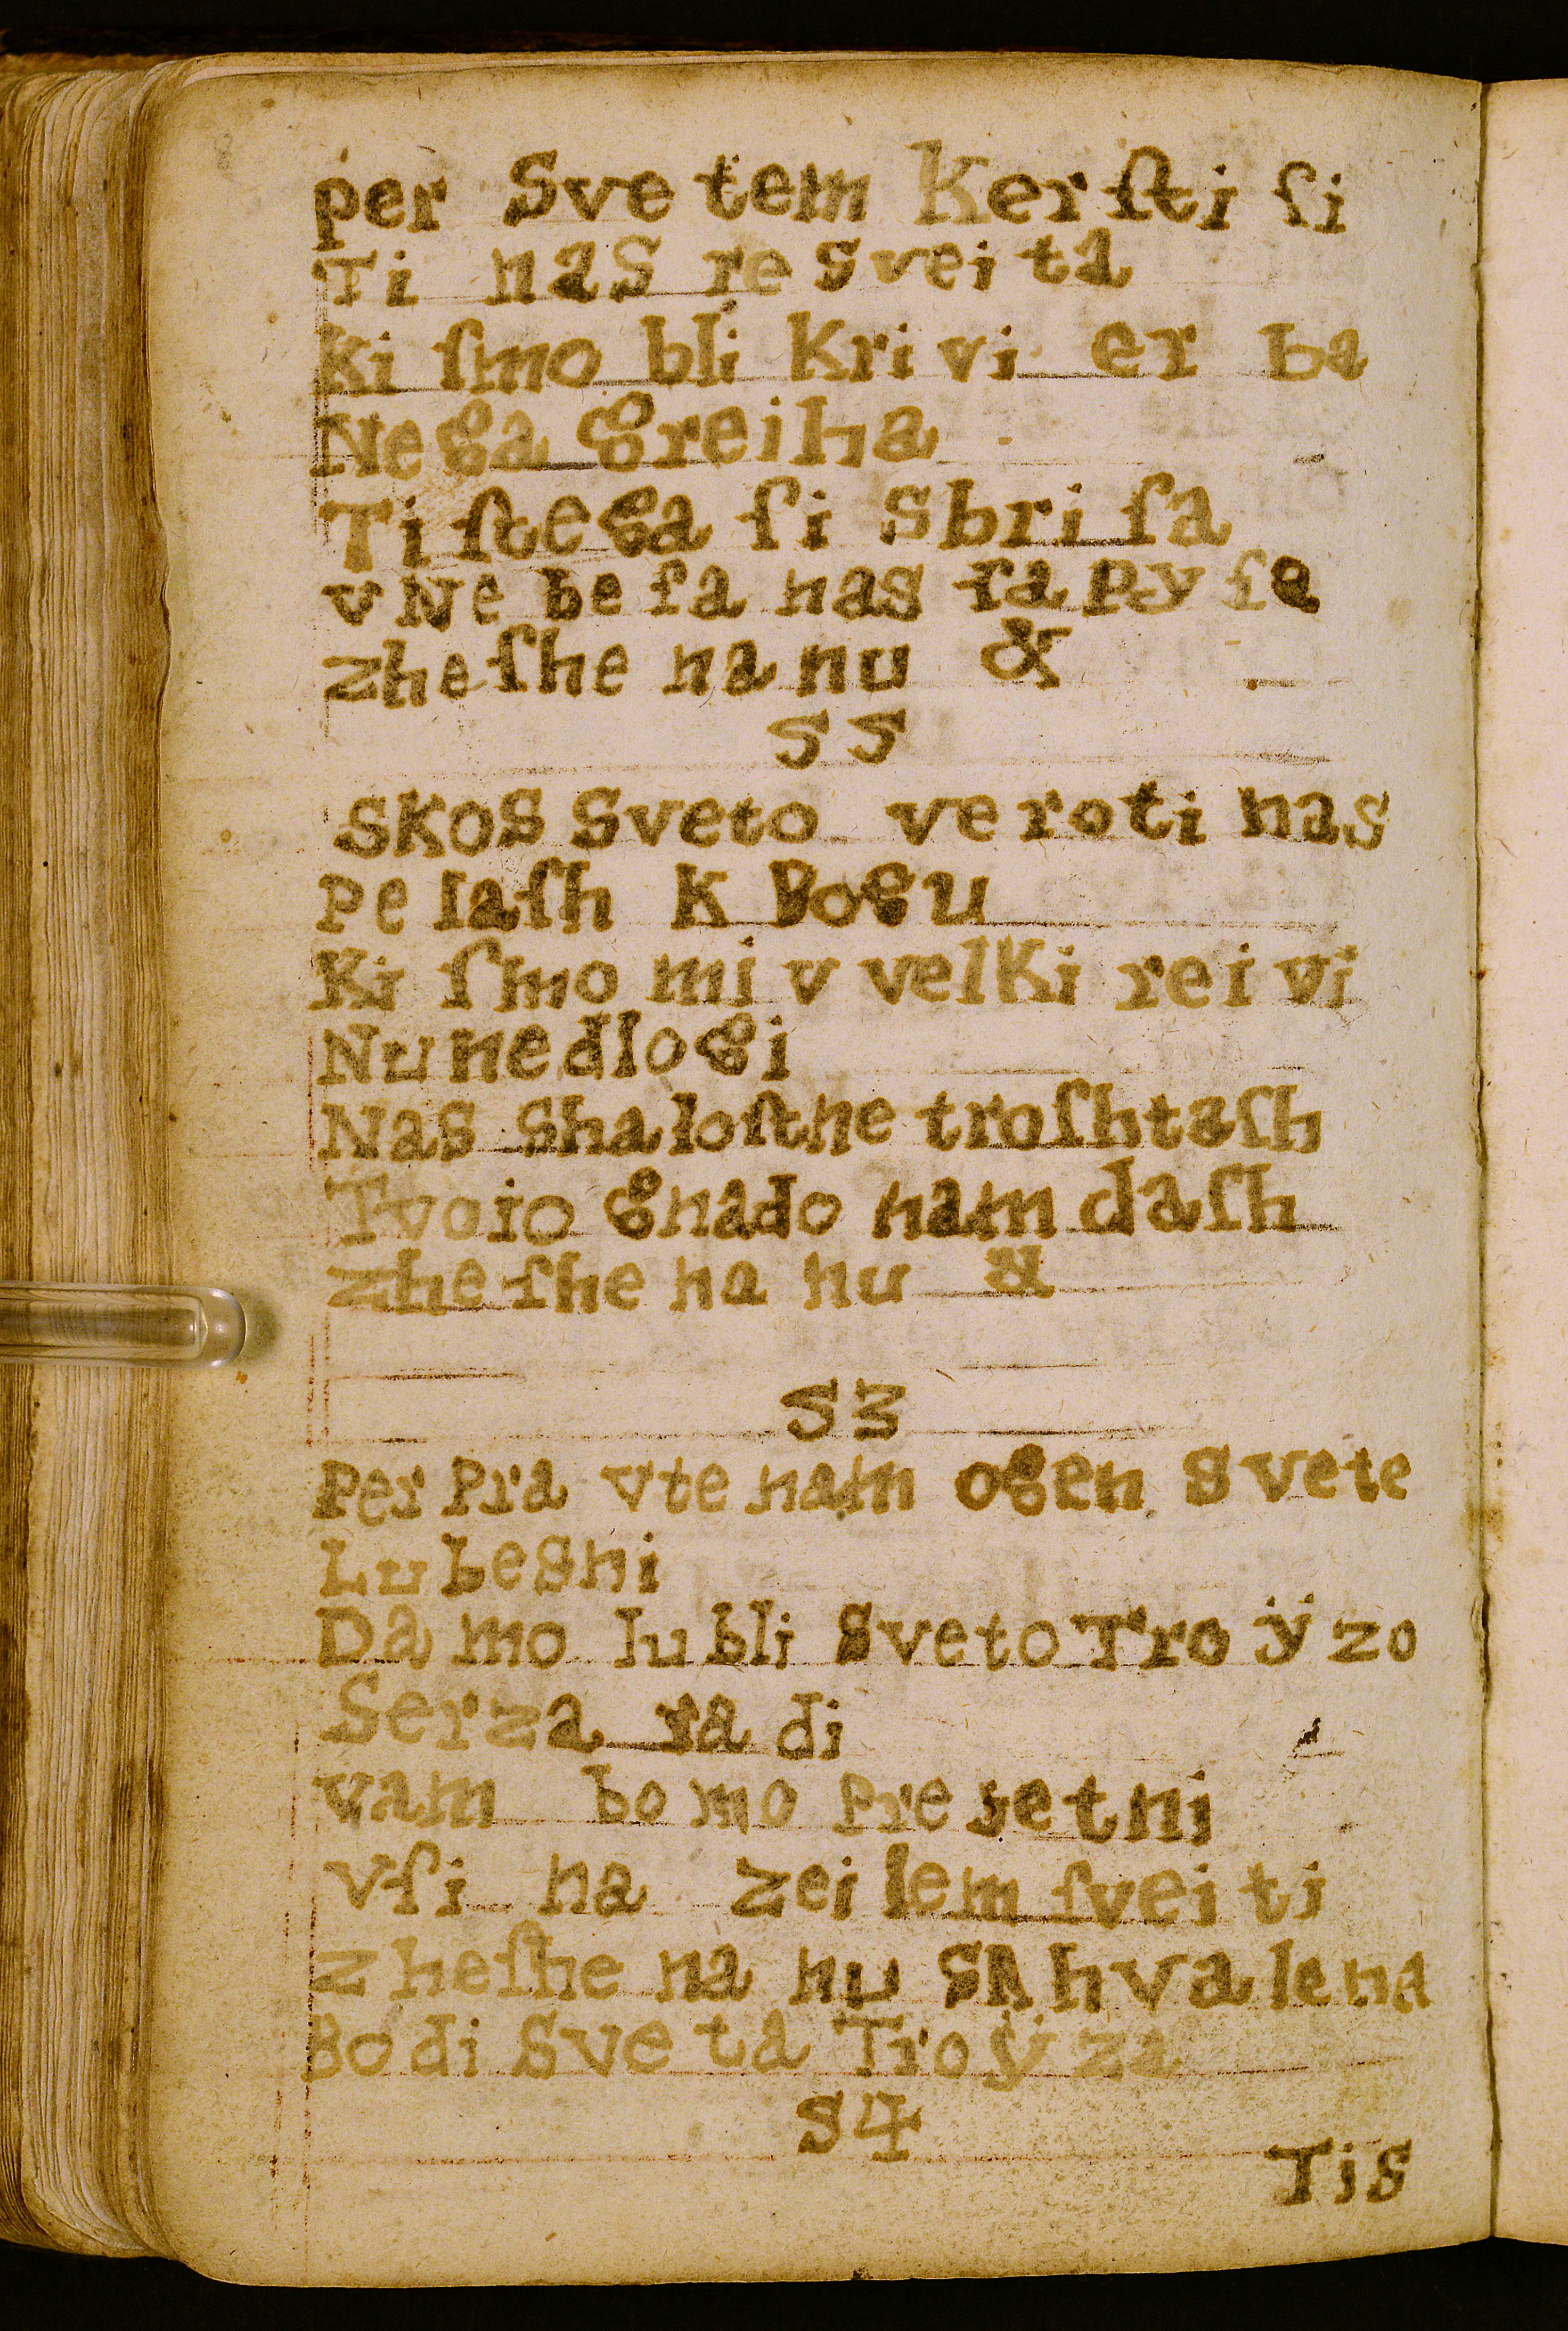 per Sve tem Kerſti ſi
Ti nas re sveita
Ki ſmo bli Krivi er ba
Nega greiha
Ti ſtega ſi Sbriſa
v Ne be ſa nas ſa py ſe
zheſhe na nu &
55
SKOS Sveto veroti nas
Pelaſh K Bogu
Ki ſmo mi v velKi rei vi
Nu nedlogi
Nas Shaloſtne troſhtaſh
Tvoio gnado nam daſh
zheſhe na nu &
53
Per Pra vte nam ogen Svete
Lubesni
Da mo lubli Sveto Troÿzo
Serza ra di
vam bo mo Presetni
vſi na zeilem ſveiti
zheſhe na nu SA hvalena
Bodi Sveta Troÿza
54
Tis